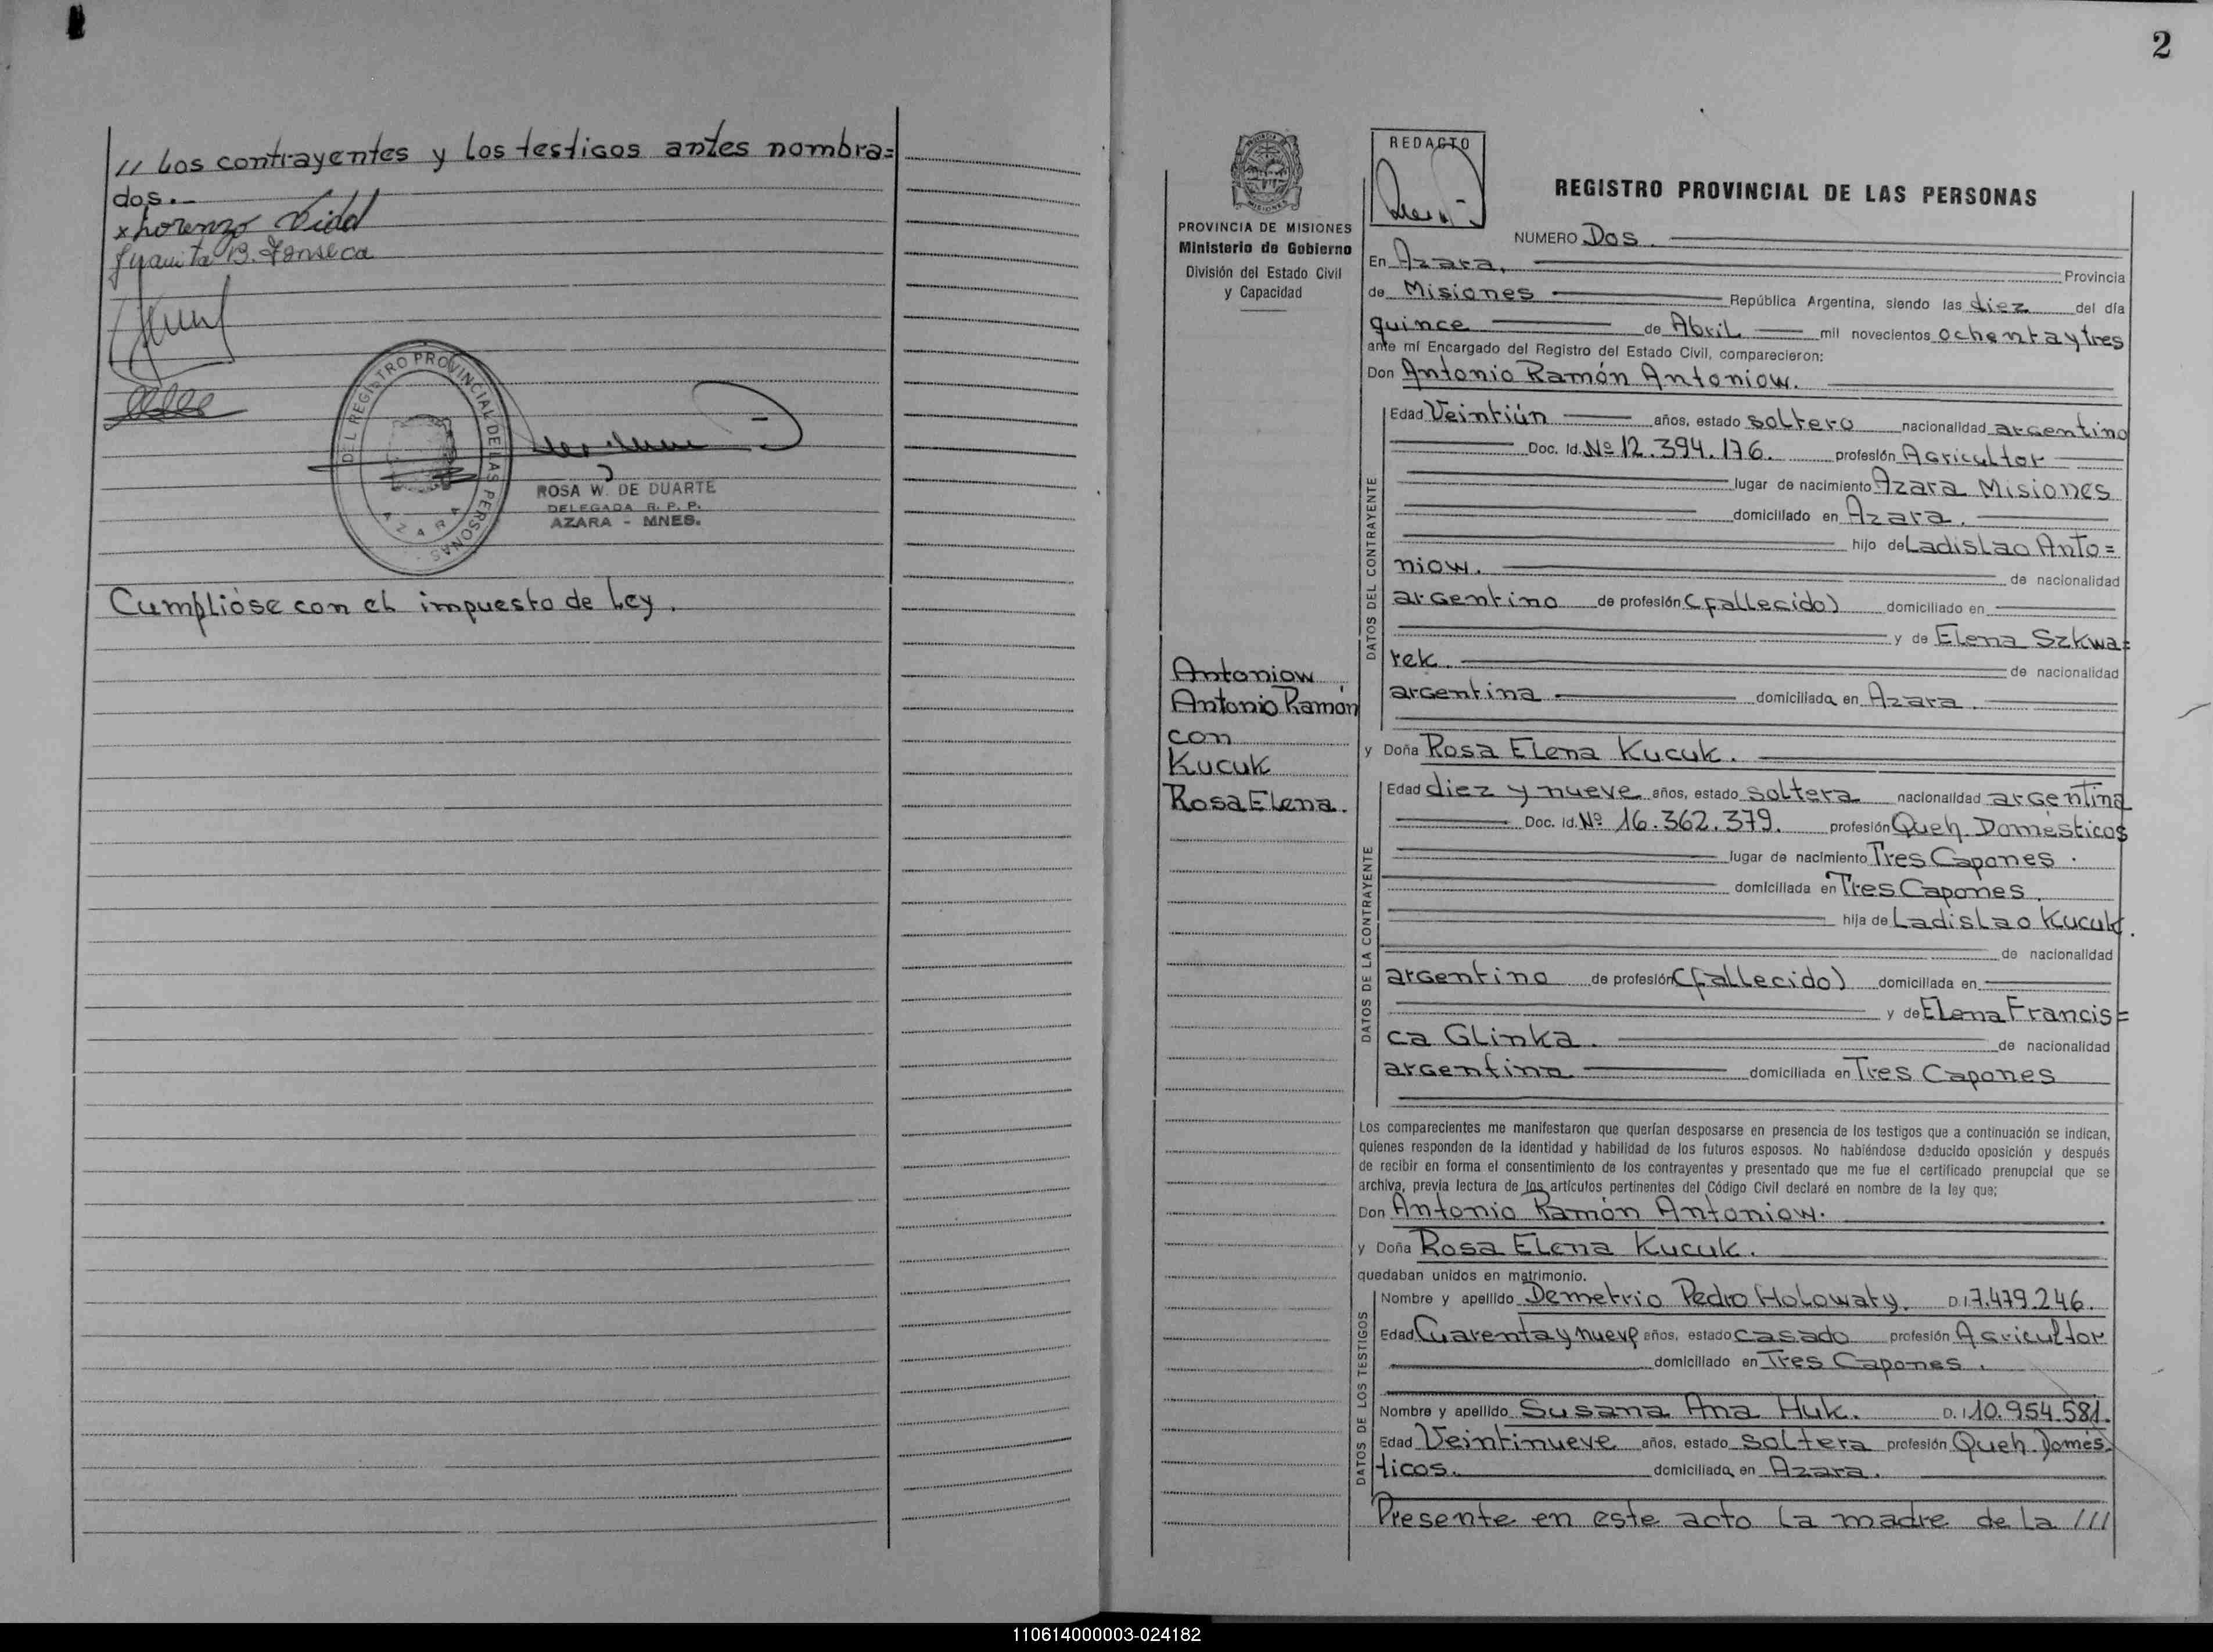 // Los contrayentes y los testigos antes nombra=
dos.-
x Lorenzo Vidal
Juanita B. Fonseca
DEL REGISTRO PROVINCIAL DE LAS PERSONAS -
AZARA
ROSA W. DE DUARTE
DELEGADA R. P. P.
AZARA - MNES.
Cumplióse con el impuesto de Ley.
2
PROVINCIA DE MISIONES
Ministerio de Gobierno
División del Estado Civil
y Capacidad
Antoniow
Antonio Ramón
con
Kucuk
Rosa Elena.
REDACTO
REGISTRO PROVINCIAL DE LAS PERSONAS
NUMERO Dos
En Azara, Provincia
de Misiones República Argentina, siendo las diez del día
quince de Abril mil novecientos ochenta y tres
ante mí Encargado del Registro del Estado Civil, comparecieron:
Don Antonio Ramón Antoniow.
DATOS DEL CONTRAYENTE
Edad Veintiún años, estado soltero nacionalidad argentino
Doc. Id. Nº 12.394.176. profesión Agricultor
lugar de nacimiento Azara Misiones
domiciliado en Azara.
hijo de Ladislao Anto=
niow. de nacionalidad
argentino de profesión (fallecido) domiciliado en
y de Elena Szkwa=
rek. de nacionalidad
argentina domiciliada en Azara.
y Doña Rosa Elena Kucuk.
DATOS DE LA CONTRAYENTE
Edad diez y nueve años, estado soltera nacionalidad argentina
Doc. Id. Nº 16.362.379. profesión Queh. Domésticos
lugar de nacimiento Tres Capones.
domiciliada en Tres Capones.
hija de Ladislao Kucuk.
de nacionalidad
argentino de profesión (fallecido) domiciliada en
y de Elena Francis=
ca Glinka. de nacionalidad
argentina domiciliada en Tres Capones
Los comparecientes me manifestaron que querían desposarse en presencia de los testigos que a continuación se indican,
quienes responden de la identidad y habilidad de los futuros esposos. No habiéndose deducido oposición y después
de recibir en forma el consentimiento de los contrayentes y presentado que me fue el certificado prenupcial que se
archiva, previa lectura de los artículos pertinentes del Código Civil declaré en nombre de la ley que;
Don Antonio Ramón Antoniow.
y Doña Rosa Elena Kucuk.
quedaban unidos en matrimonio.
DATOS DE LOS TESTIGOS
Nombre y apellido Demetrio Pedro Holowaty. D.I 7.479.246.
Edad Cuarenta y nueve años, estado casado profesión Agricultor
domiciliado en Tres Capones.
Nombre y apellido Susana Ana Huk. D.I 10.954.581.
Edad Veintinueve años, estado soltera profesión Queh. Domés.
ticos. domiciliada en Azara.
Presente en este acto la madre de la ///
110614000003-024182